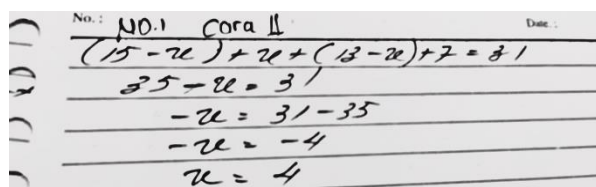 No.: NO.1 Cara II Date.:
(15-x)+x+(13-x)+7=31
35-x=31
-x=31-35
-x=-4
x=4